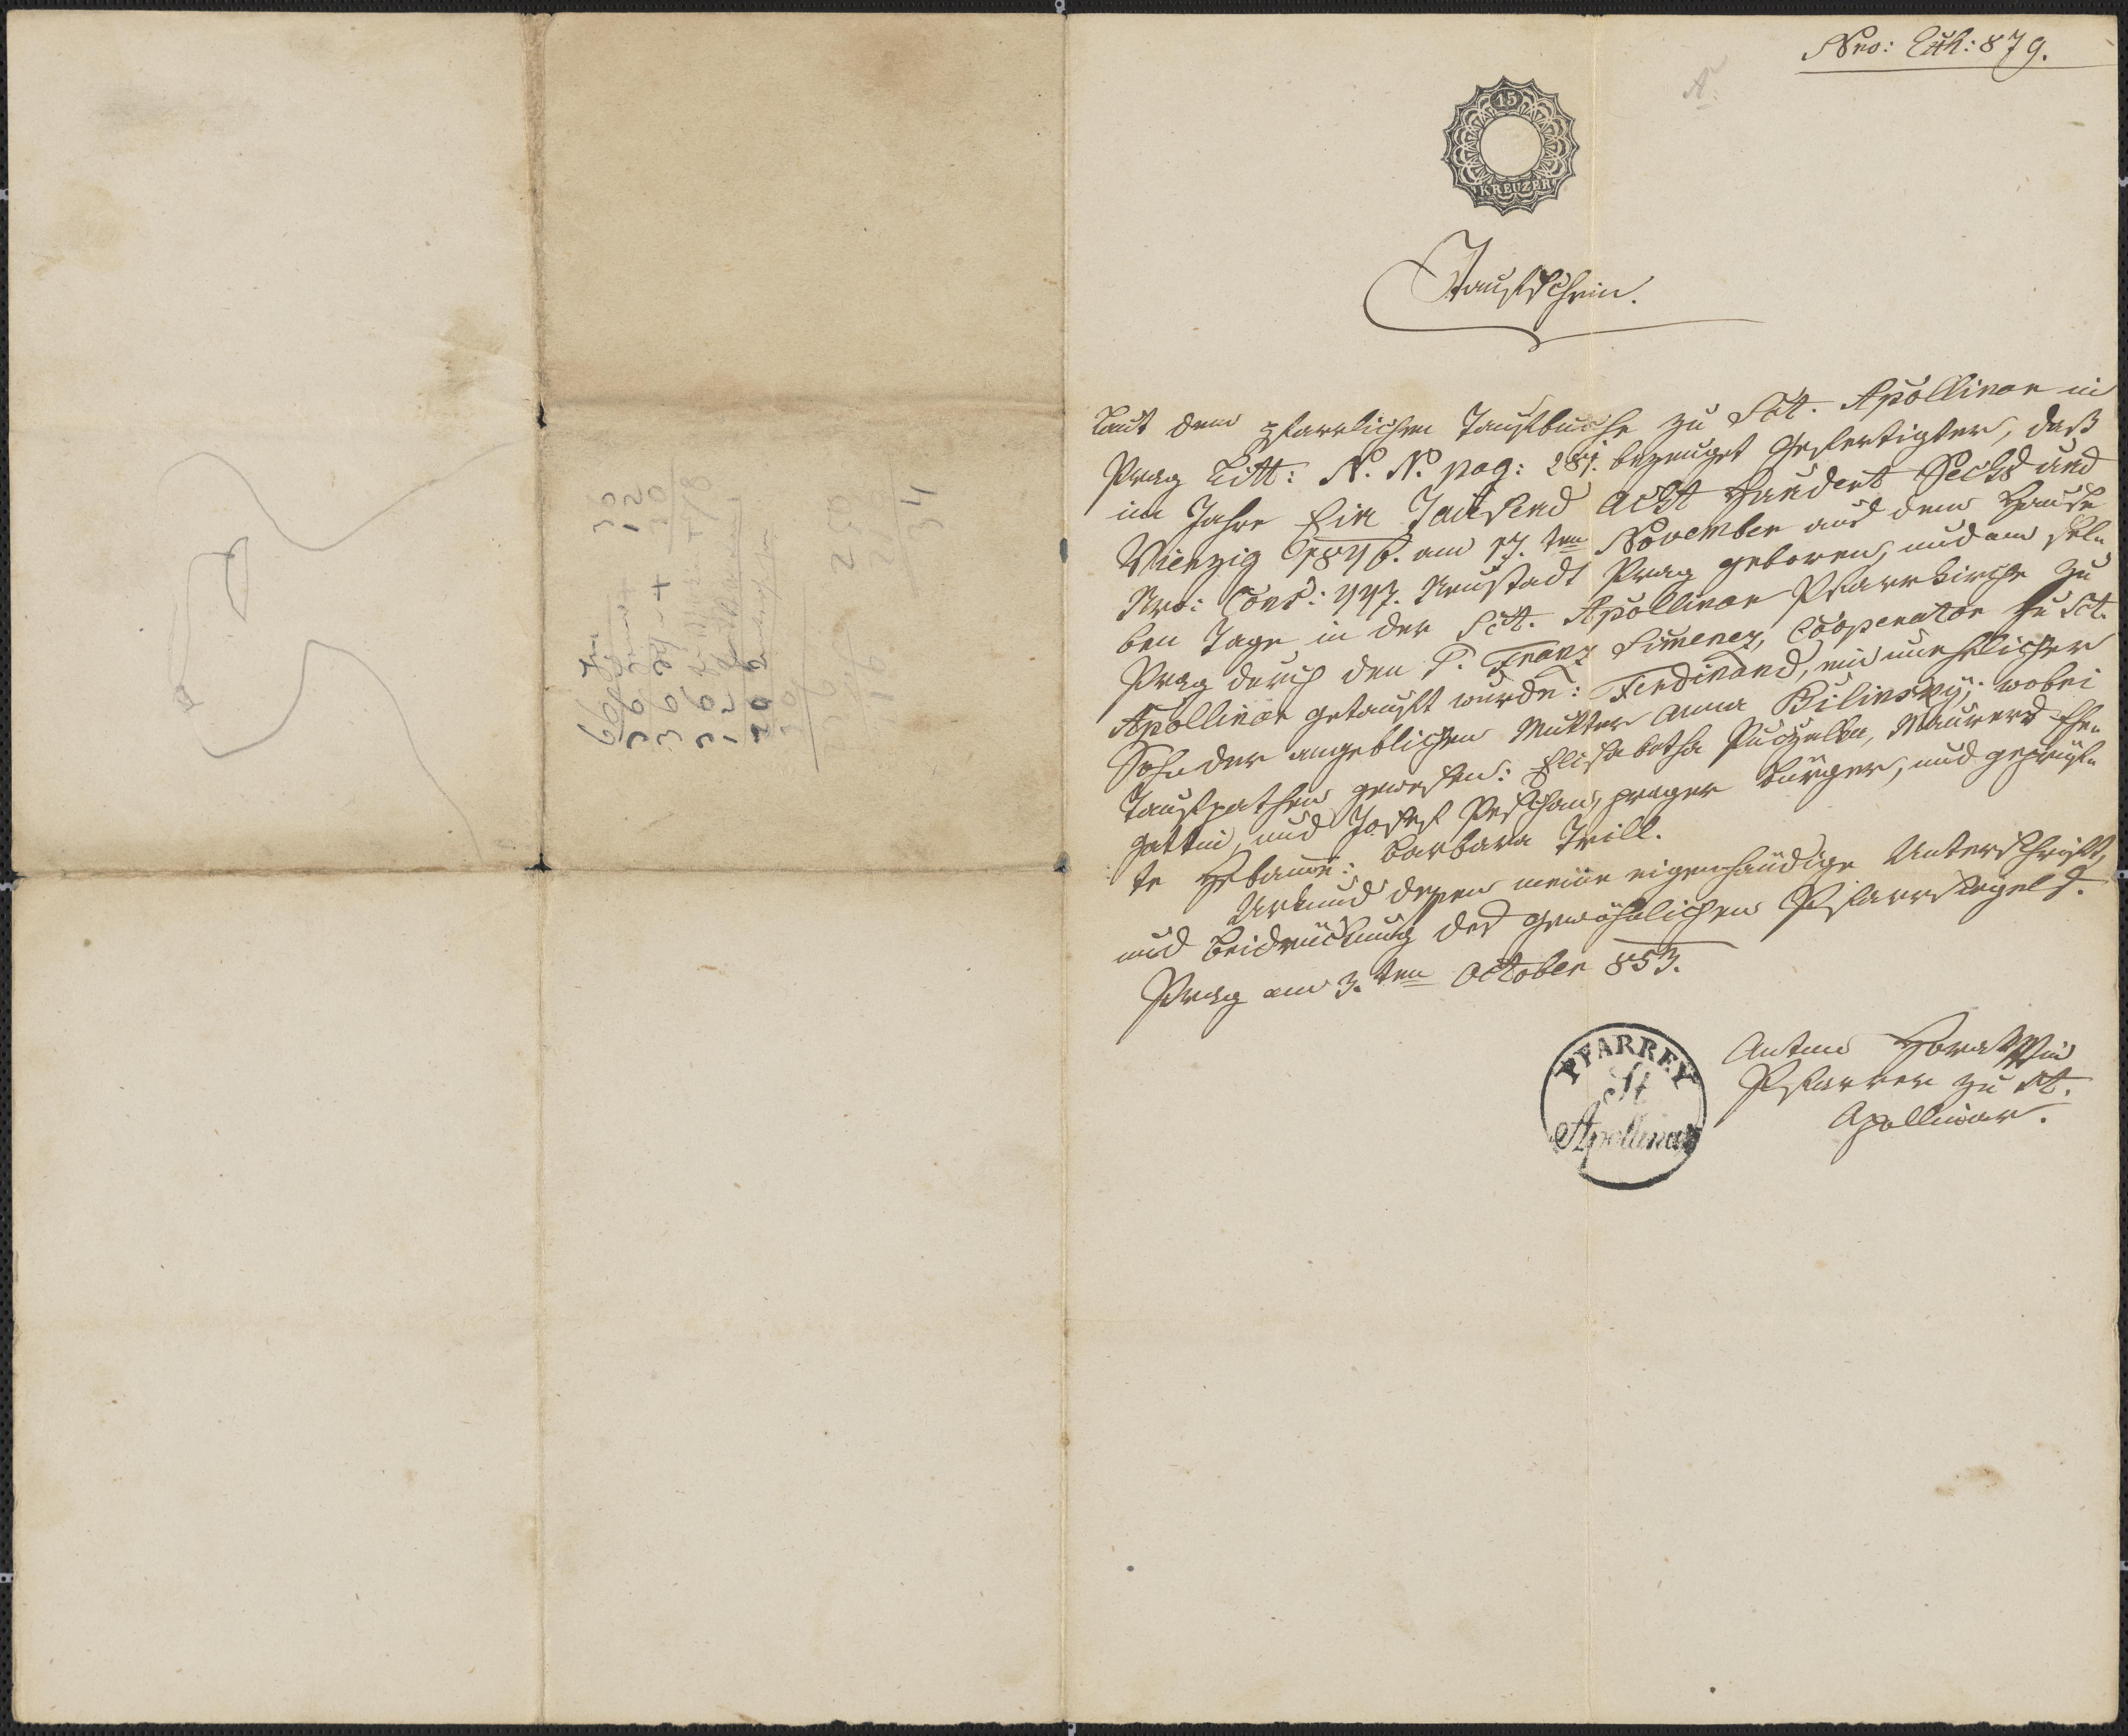 Nro: Exh: 879.
15
KREUZER
Taufschein.
Laut dem pfarrlichen Taufbuche zu Sct. Apollinar in
Prag Litt: N. N. pag: 281. bezeuget Gefertigter, daß
im Jahre Ein Tausend Acht Hundert Sechs und
Vierzig 1846. am 17.ten November aus dem Hause
Nro: Cons: 447. Neustadt Prag geboren, und am sel„
ben Tage in der Sct. Apollinar Pfarrkirche zu
Prag durch den P. Franz Simenez, Cooperator zu Sct.
Apollinar getauft wurde: Ferdinand, ein unehelicher
Sohn der angeblichen Mutter Anna Bilinsky; wobei
Taufpathen gewesen: Elisabetha Puczelka, Maurers Ehe„
gattin, und Josef Peschan, prager Bürger, und geprüf„
te Hebamme: Barbara Trill.
Urkund dessen meine eigenhändige Unterschrift,
und Beidrückung des gewöhnlichen Pfarrsiegels.
Prag am 3.ten October 853.
PFARREY
St
Apollinar
Anton
Pfarrer zu St.
Apollinar.
36
12
30
66
36
36
36
12
20
250
34
16